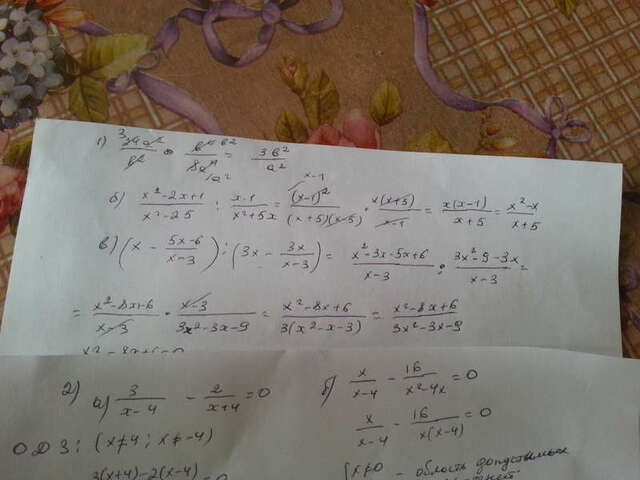 1) 3 24a² / b² • b⁴ b² / 8a⁴ a² = 3b² / a²
x-1
б) x²-2x+1 / x²-25 : x-1 / x²+5x = (x-1)² / (x+5)(x-5) • x(x+5) / x-1 = x(x-1) / x+5 = x²-x / x+5
в) (x - 5x-6 / x-3) : (3x - 3x / x-3) = x²-3x-5x+6 / x-3 : 3x²-9-3x / x-3 =
= x²-8x+6 / x-3 • x-3 / 3x²-3x-9 = x²-8x+6 / 3(x²-x-3) = x²-8x+6 / 3x²-3x-9
2) а) 3 / x-4 - 2 / x+4 = 0
ОДЗ: (x≠4; x≠-4)
3(x+4)-2(x-4) =0
б) x / x-4 - 16 / x²-4x = 0
x / x-4 - 16 / x(x-4) = 0
{x≠0 - область допустимых